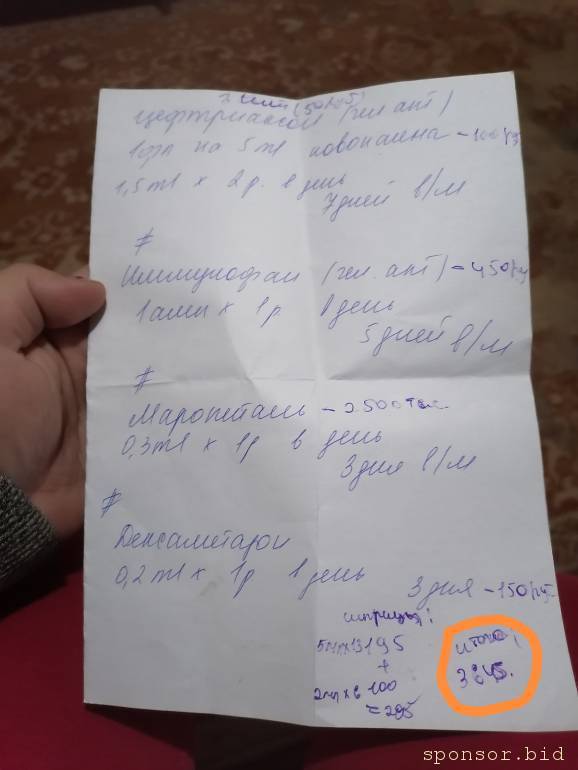 цефтриаксон (чел. апт)
1 фл на 5 ml новокаина - 100
1,5 ml x 2 р. в день
7 дней в/м
#
Иммунофан (чел. апт) - 450
1 амп x 1 р в день
5 дней в/м
#
Маропиталь - 2500
0,3 ml x 1 р в день
3 дня в/м
#
Дексаметазон
0,2 ml x 1 р в день
3 дня - 150
шприцы:
195
+
100
= 295
итого:
3845.
sponsor.bid